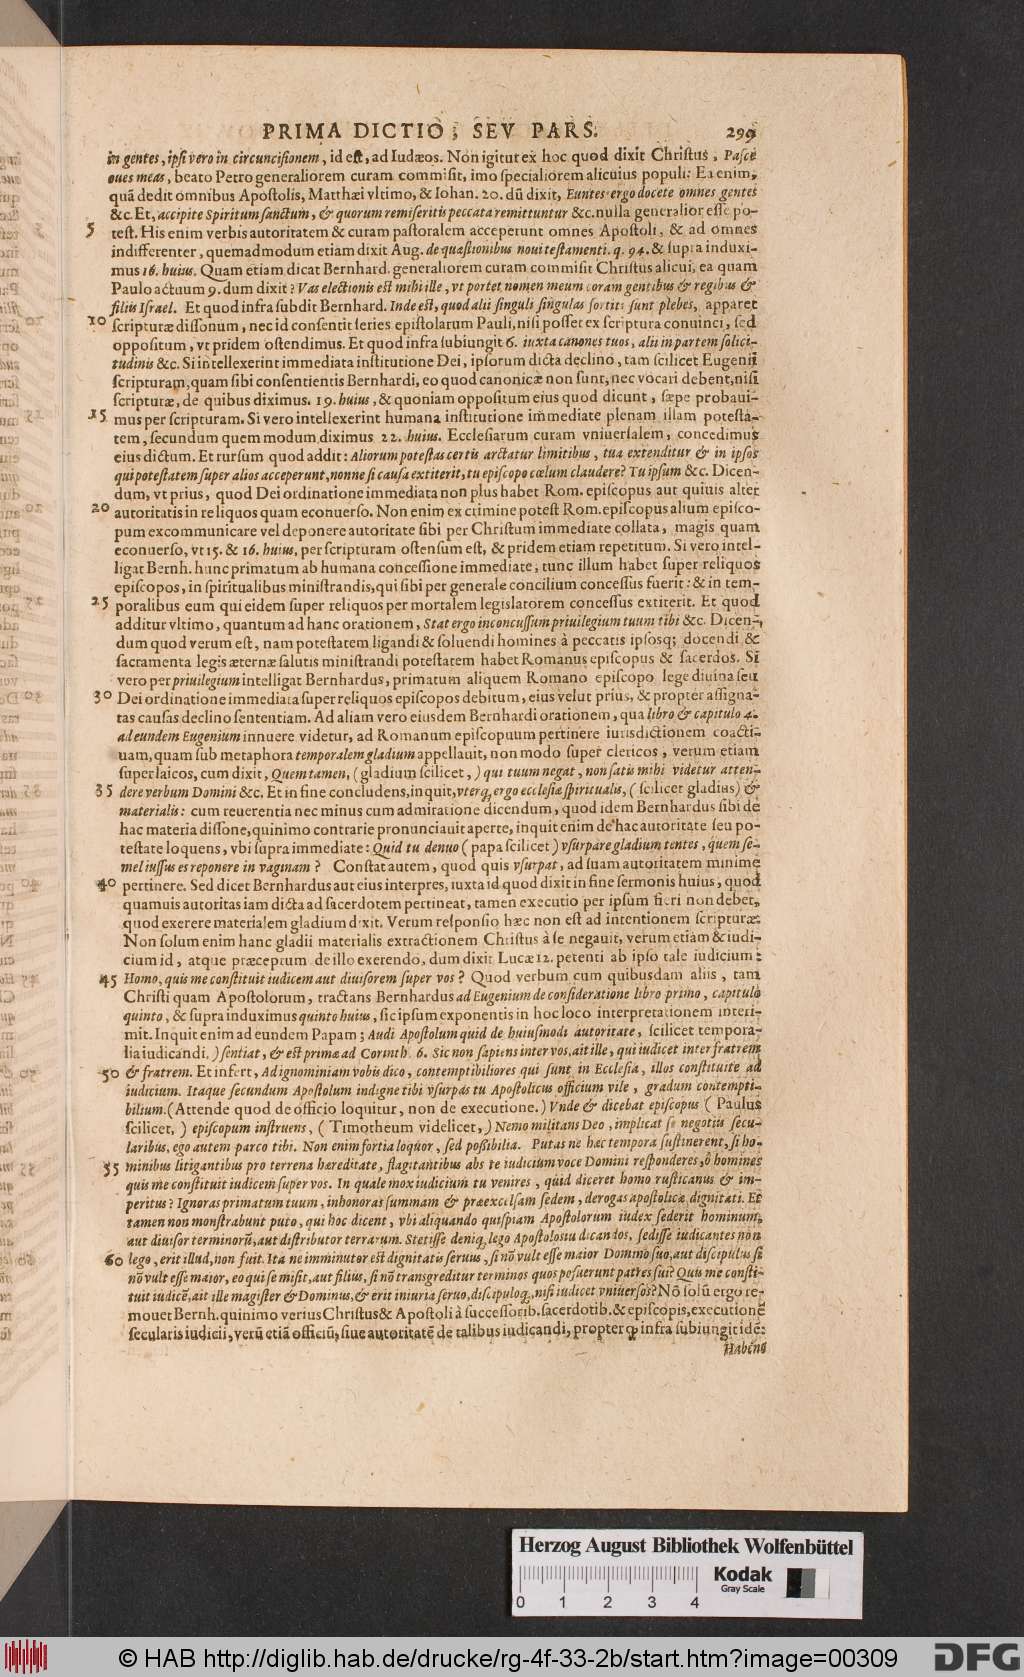 PRIMA DICTIO, SEV PARS. 299
in gentes, ipsi vero in circuncisionem, id est, ad Iudæos. Non igitur ex hoc quod dixit Christus, Pasce
oues meas, beato Petro generaliorem curam commisit, imo specialiorem alicuius populi: Ea enim,
quã dedit omnibus Apostolis, Matthæi vltimo, & Iohan. 20. dũ dixit, Euntes ergo docete omnes gentes
&c. Et, accipite Spiritum sanctum, & quorum remiseritis peccata remittuntur &c. nulla generalior esse po-
5 test. His enim verbis autoritatem & curam pastoralem acceperunt omnes Apostoli, & ad omnes
indifferenter, quemadmodum etiam dixit Aug. de quæstionibus noui testamenti. q. 94. & supra induxi-
mus 16. huius. Quam etiam dicat Bernhard. generaliorem curam commisit Christus alicui, ea quam
Paulo actuum 9. dum dixit? Vas electionis est mihi ille, vt portet nomen meum coram gentibus & regibus &
filiis Israel. Et quod infra subdit Bernhard. Inde est, quod alii singuli singulas sortiti sunt plebes, apparet
10 scripturæ dissonum, nec id consentit series epistolarum Pauli, nisi posset ex scriptura conuinci, sed
oppositum, vt pridem ostendimus. Et quod infra subiungit 6. iuxta canones tuos, alii in partem solici-
tudinis &c. Si intellexerint immediata institutione Dei, ipsorum dicta declino, tam scilicet Eugenii
scripturam, quam sibi consentientis Bernhardi, eo quod canonicæ non sunt, nec vocari debent, nisi
scripturæ, de quibus diximus. 19. huius, & quoniam oppositum eius quod dicunt, sæpe probaui-
15 mus per scripturam. Si vero intellexerint humana institutione im̃ediate plenam illam potesta-
tem, secundum quem modum diximus 22. huius. Ecclesiarum curam vniuersalem, concedimus
eius dictum. Et rursum quod addit: Aliorum potestas certis arctatur limitibus, tua extenditur & in ipsos
qui potestatem super alios acceperunt, nonne si causa extiterit, tu episcopo cœlum claudere? Tu ipsum &c. Dicen-
dum, vt prius, quod Dei ordinatione immediata non plus habet Rom. episcopus aut quiuis alter
20 autoritatis in reliquos quam econuerso. Non enim ex crimine potest Rom. episcopus alium episco-
pum excommunicare vel deponere autoritate sibi per Christum immediate collata, magis quam
econuerso, vt 15. & 16. huius, per scripturam ostensum est, & pridem etiam repetitum. Si vero intel-
ligat Bernh. hunc primatum ab humana concessione immediate, tunc illum habet super reliquos
episcopos, in spiritualibus ministrandis, qui sibi per generale concilium concessus fuerit: & in tem-
25 poralibus eum qui eidem super reliquos per mortalem legislatorem concessus extiterit. Et quod
additur vltimo, quantum ad hanc orationem, Stat ergo inconcussum priuilegium tuum tibi &c. Dicen-
dum quod verum est, nam potestatem ligandi & soluendi homines à peccatis ipsosq; docendi &
sacramenta legis æternæ salutis ministrandi potestatem habet Romanus episcopus & sacerdos. Si
vero per priuilegium intelligat Bernhardus, primatum aliquem Romano episcopo lege diuina seu
30 Dei ordinatione immediata super reliquos episcopos debitum, eius velut prius, & propter assigna-
tas causas declino sententiam. Ad aliam vero eiusdem Bernhardi orationem, qua libro & capitulo 4.
ad eundem Eugenium innuere videtur, ad Romanum episcopuum pertinere iurisdictionem coacti-
uam, quam sub metaphora temporalem gladium appellauit, non modo super clericos, verum etiam
super laicos, cum dixit, Quem tamen, (gladium scilicet,) qui tuum negat, non satis mihi videtur atten-
35 dere verbum Domini &c. Et in fine concludens, inquit, vterq; ergo ecclesiæ spiritualis, (scilicet gladius) &
materialis: cum reuerentia nec minus cum admiratione dicendum, quod idem Bernhardus sibi de
hac materia dissone, quinimo contrarie pronunciauit aperte, inquit enim de hac autoritate seu po-
testate loquens, vbi supra immediate: Quid tu denuo (papa scilicet) vsurpare gladium tentes, quem se-
mel iussus es reponere in vaginam? Constat autem, quod quis vsurpat, ad suam autoritatem minime
40 pertinere. Sed dicet Bernhardus aut eius interpres, iuxta id quod dixit in fine sermonis huius, quod
quamuis autoritas iam dicta ad sacerdotem pertineat, tamen executio per ipsum fieri non debet,
quod exerere materialem gladium dixit. Verum responsio hæc non est ad intentionem scripturæ:
Non solum enim hanc gladii materialis extractionem Christus à se negauit, verum etiam & iudi-
cium id, atque præceptum de illo exerendo, dum dixit Lucæ 12. petenti ab ipso tale iudicium:
45 Homo, quis me constituit iudicem aut diuisorem super vos? Quod verbum cum quibusdam aliis, tam
Christi quam Apostolorum, tractans Bernhardus ad Eugenium de consideratione libro primo, capitulo
quinto, & supra induximus quinto huius, sic ipsum exponentis in hoc loco interpretationem interi-
mit. Inquit enim ad eundem Papam; Audi Apostolum quid de huiusmodi autoritate, scilicet tempora-
lia iudicandi.) sentiat, & est primæ ad Corinth. 6. Sic non sapiens inter vos, ait ille, qui iudicet inter fratrem
50 & fratrem. Et infert, Ad ignominiam vobis dico, contemptibiliores qui sunt in Ecclesia, illos constituite ad
iudicium. Itaque secundum Apostolum indigne tibi vsurpas tu Apostolicus officium vile, gradum contempti-
bilium. (Attende quod de officio loquitur, non de executione.) Vnde & dicebat episcopus (Paulus
scilicet,) episcopum instruens, (Timotheum videlicet,) Nemo militans Deo, implicat se negotiis secu-
laribus, ego autem parco tibi. Non enim fortia loquor, sed possibilia. Putas ne hæc tempora sustinerent, si ho-
55 minibus litigantibus pro terrena hæreditate, flagitantibus abs te iudicium voce Domini responderes, ô homines
quis me constituit iudicem super vos. In quale mox iudicium tu venires, quid diceret homo rusticanus & im-
peritus? Ignoras primatum tuum, inhonoras summam & præexcelsam sedem, derogas apostolicæ dignitati. Et
tamen non monstrabunt puto, qui hoc dicent, vbi aliquando quispiam Apostolorum iudex sederit hominum,
aut diuisor terminorũ, aut distributor terrarum. Stetisse deniq; lego Apostolos iudicandos, sedisse iudicantes non
60 lego, erit illud, non fuit. Ita ne imminutor est dignitatis seruus, si nõ vult esse maior Domino suo, aut discipulus si
nõ vult esse maior, eo qui se misit, aut filius, si nõ transgreditur terminos quos posuerunt patres sui? Quis me consti-
tuit iudicẽ, ait ille magister & Dominus, & erit iniuria seruo, discipuloq;, nisi iudicet vniuersos? Nõ solũ ergo re-
mouet Bernh. quinimo verius Christus & Apostoli à successorib. sacerdotib. & episcopis, executionẽ
secularis iudicii, verũ etiã officiũ, siue autoritatẽ de talibus iudicandi, propter q; infra subiungit idẽ:
Habent
Herzog August Bibliothek Wolfenbüttel
Kodak
Gray Scale
0 1 2 3 4
© HAB http://diglib.hab.de/drucke/rg-4f-33-2b/start.htm?image=00309
DFG